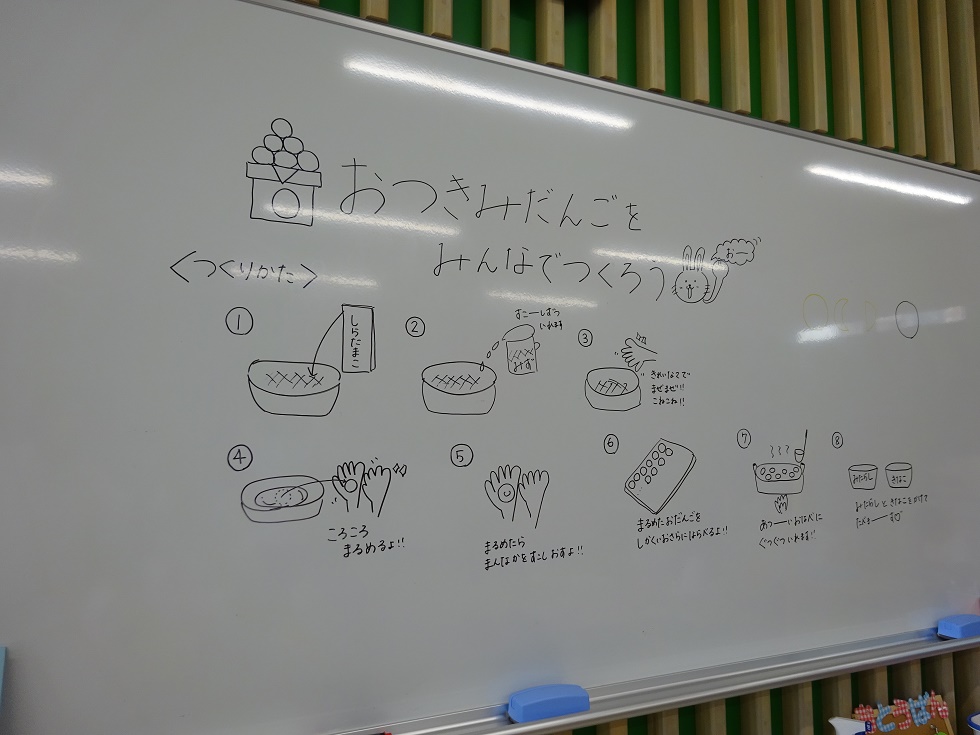 おつきみだんごを
みんなでつくろう
おー
<つくりかた>
①
しらたまこ
②
すこーしずつ
いれます
みず
③
きれいなてで
まぜまぜ!!
こねこね!!
④
ころころ
まるめるよ!!
⑤
まるめたら
まんなかをすこしおすよ!!
⑥
まるめたおだんごを
しかくいおさらにならべるよ!!
⑦
あつーいおなべに
ぐつぐついれます!!
⑧
みたらし
きなこ
みたらしときなこをかけて